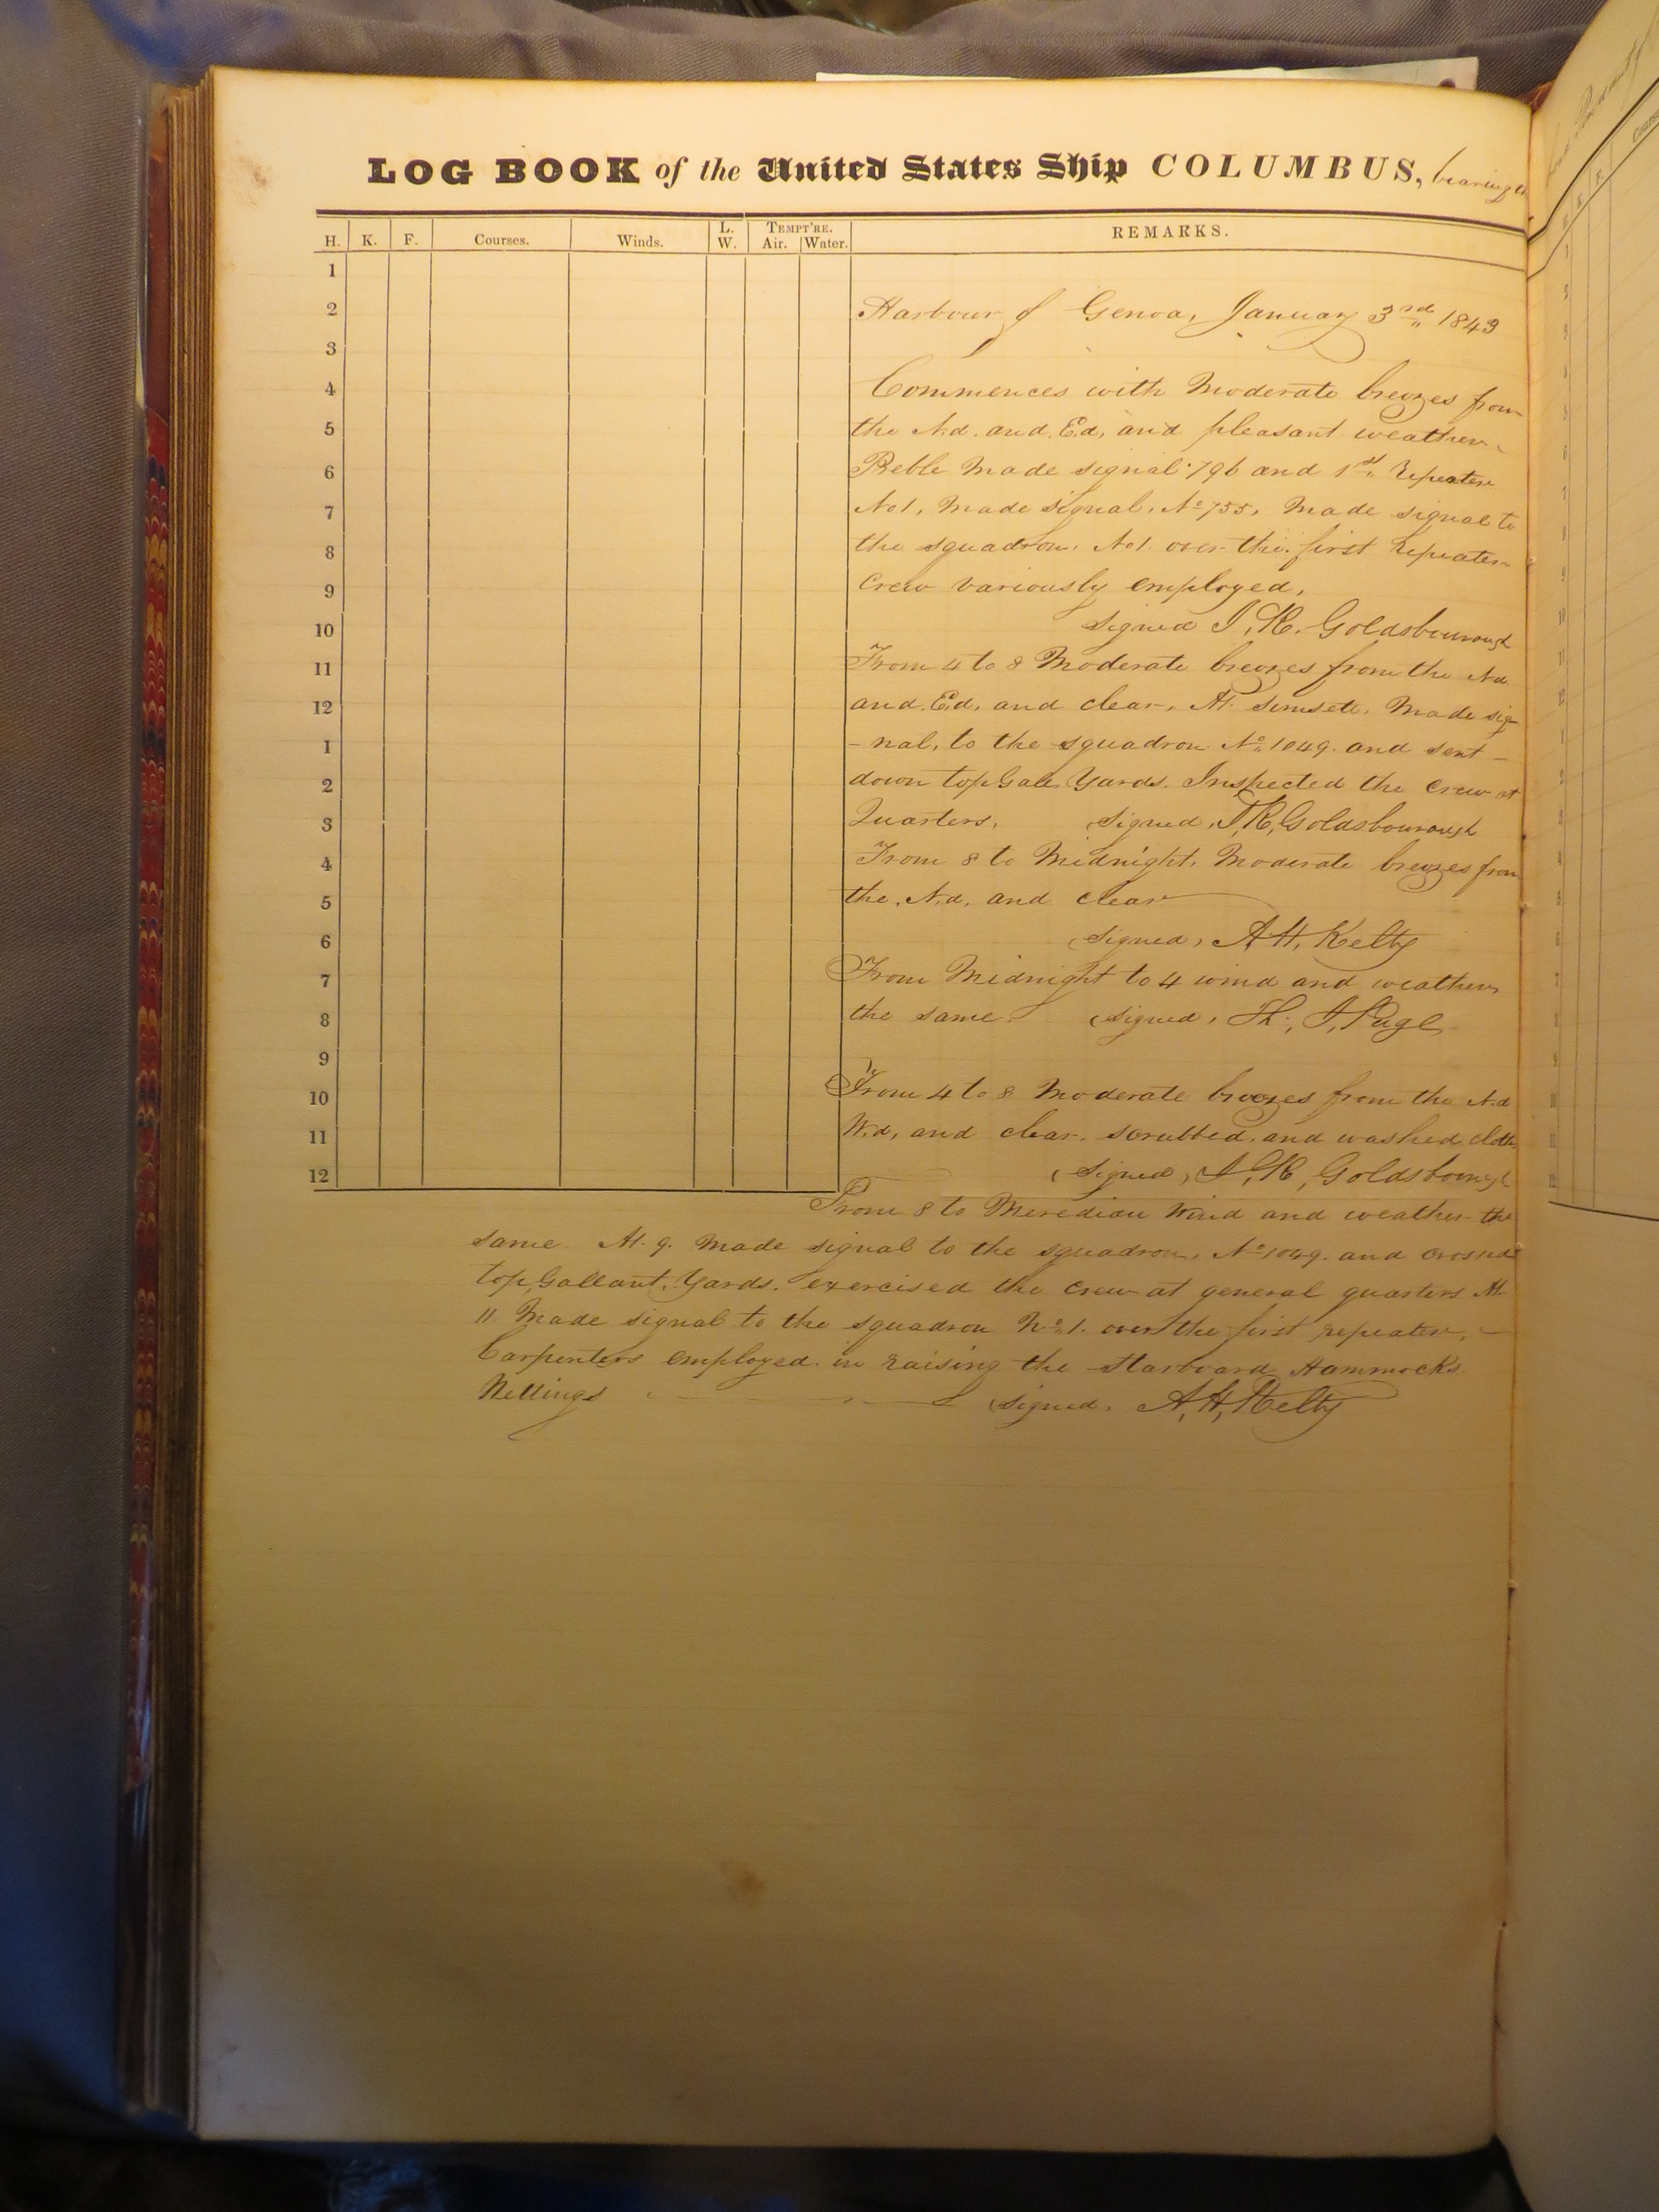 LOG BOOK of the United States Ship COLUMBUS, bearing
H. K. F. Courses. Winds. L. W. TEMPT'RE. Air. Water. REMARKS.
1
2 Harbour of Genoa, January 3rd 1843
3
4 Commences with Moderate breezes from
5 the Nd. and. Ed, and pleasant weather.
6 Preble Made signal 796 and 1st Repeater
7 No1, Made signal, No 755, Made signal to
8 the squadron, No1. over the first repeater
9 Crew variously employed,
10 Signed J. R. Goldsbourough
11 From 4 to 8 Moderate breezes from the Nd
12 and. Ed, and clear, At sunset. Made sig-
1 -nal, to the squadron No 1049. and sent
2 down topGall Yards. Inspected the crew at
3 Quarters, Signed, J,R,Goldsbourough
4 From 8 to Midnight, Moderate breezes from
5 the, Nd, and clear
6 Signed, A H, Kelty
7 From Midnight to 4 wind and weather
8 the same Signed, Th: J, Page
9
10 From 4 to 8 Moderate breezes from the Nd
11 Wd, and clear, scrubbed, and washed cloth
12 Signed, J, R, Goldsborough
From 8 to Meredian Wind and weather the
same. At. 9. Made signal to the squadron, No 1049. and crossed
top,Gallant,Yards. exercised the crew at general quarters At
11 Made signal to the squadron No 1. over the first repeater,
Carpenters employed in raising the Starboard Hammocks
Nettings Signed, A, H, Kelty